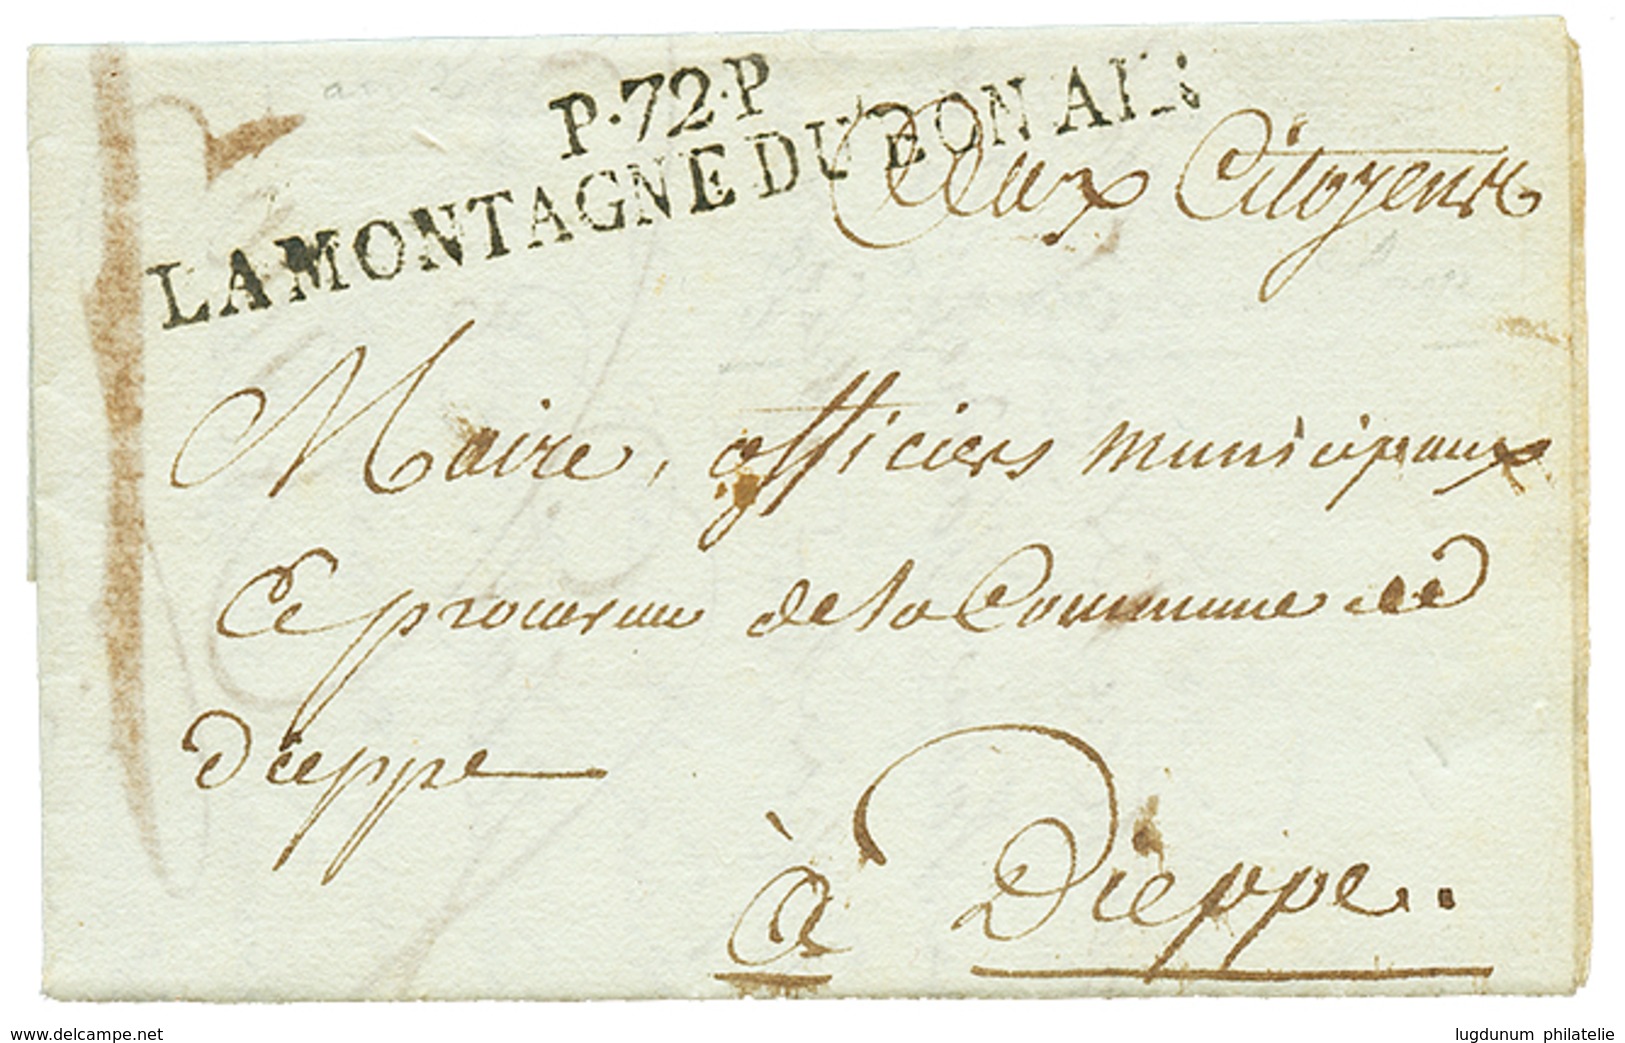 P.72.P
LA MONTAGNE DU BON AIR
Aux Citoyens
Maire, officiers municipaux
Et procureur de la Commune de
dieppe
à Dieppe..
www.delcampe.net
lugdunum philatelie